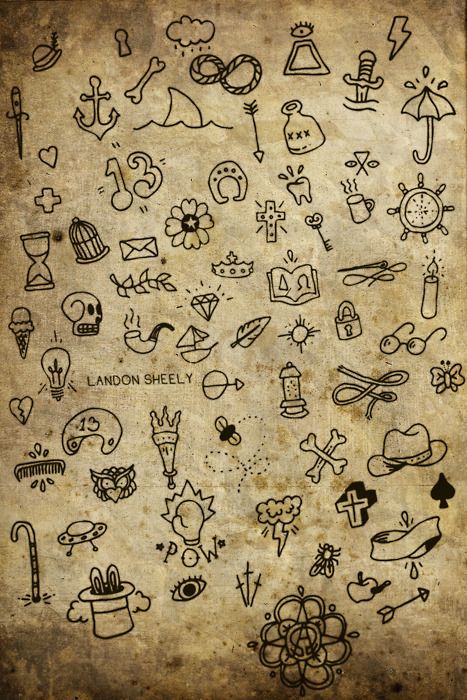 XXX
13
LANDON SHEELY
13
POW